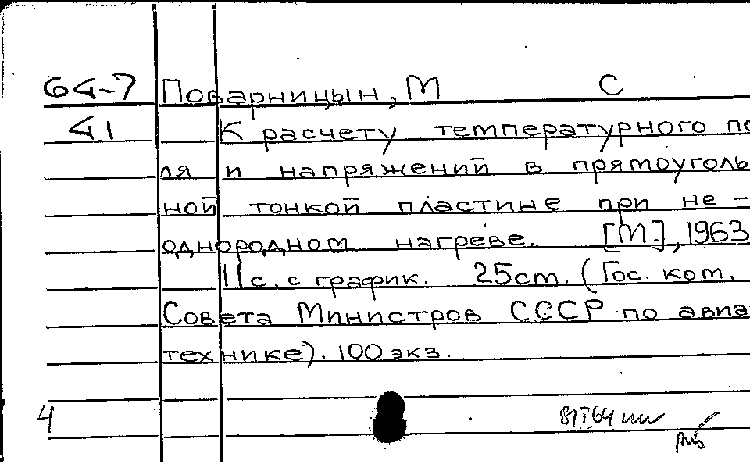 64-7 Поварницын, М С
41 К расчету температурного по
ля и напряжений в прямоуголь
ной тонкой пластине при не-
однородном нагреве. [М.], 1963
11 с. с график. 25см. (Гос. ком.
Совета Министров СССР по авиа
технике). 100 экз.
4